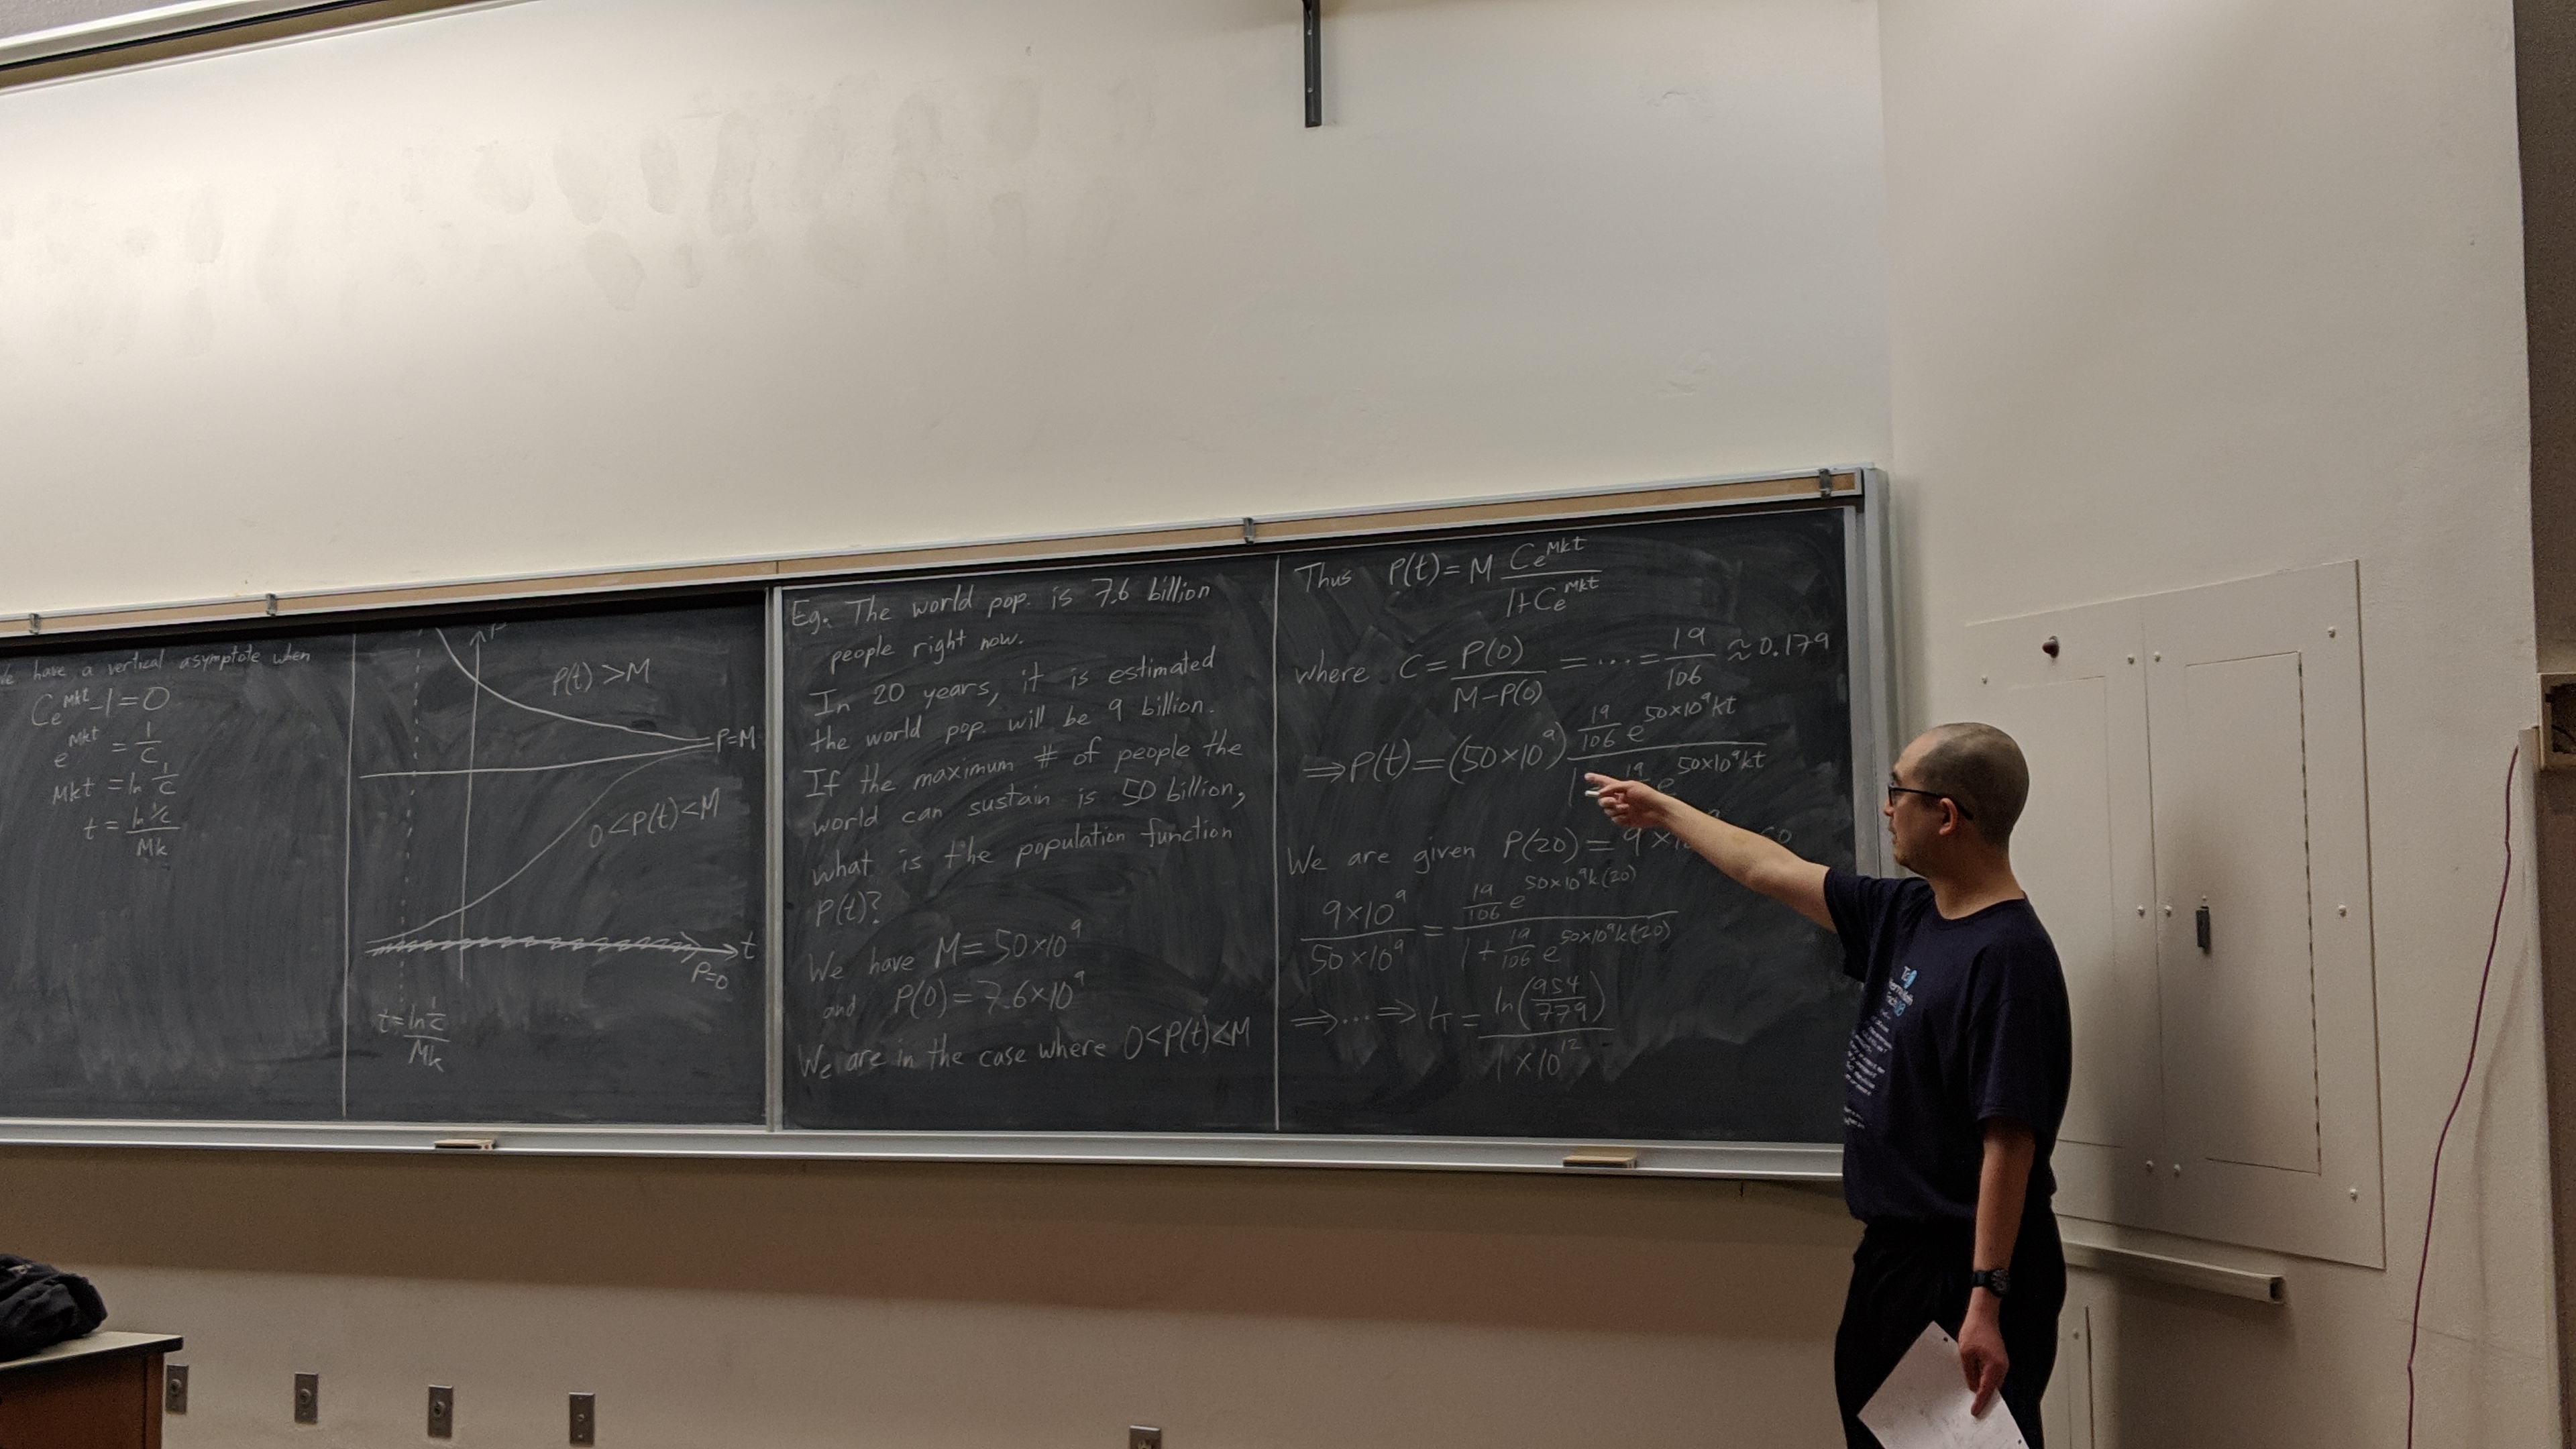 have a vertical asymptote when
Ce^{Mkt}-1=0
e^{Mkt} = 1/C
Mkt = ln 1/C
t = ln 1/C / Mk
P(t) >M
P=M
0<P(t)<M
t
P=0
t = ln 1/C / Mk
Eg. The world pop. is 7.6 billion
people right now.
In 20 years, it is estimated
the world pop. will be 9 billion.
If the maximum # of people the
world can sustain is 50 billion,
what is the population function
P(t)?
We have M = 50×10^9
and P(0) = 7.6×10^9
We are in the case where 0<P(t)<M
Thus P(t) = M Ce^{Mkt} / 1+Ce^{Mkt}
where C = P(0) / M-P(0) = ... = 19/106 ≈ 0.179
⇒ P(t) = (50×10^9) 19/106 e^{50×10^9kt} / 1 19 e^{50×10^9kt}
We are given P(20) = 9×10
9×10^9 / 50×10^9 = 19/106 e^{50×10^9k(20)} / 1 + 19/106 e^{50×10^9k(20)}
⇒ ... ⇒ k = ln(954/779) / 1×10^12